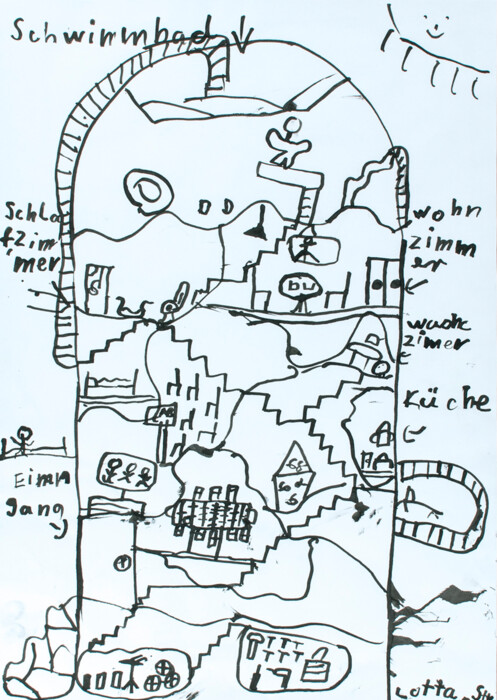 Schwimmbad
Schla
fzim
mer
wohn
zimm
er
zimer
Küche
Eimn
gang
Lotta